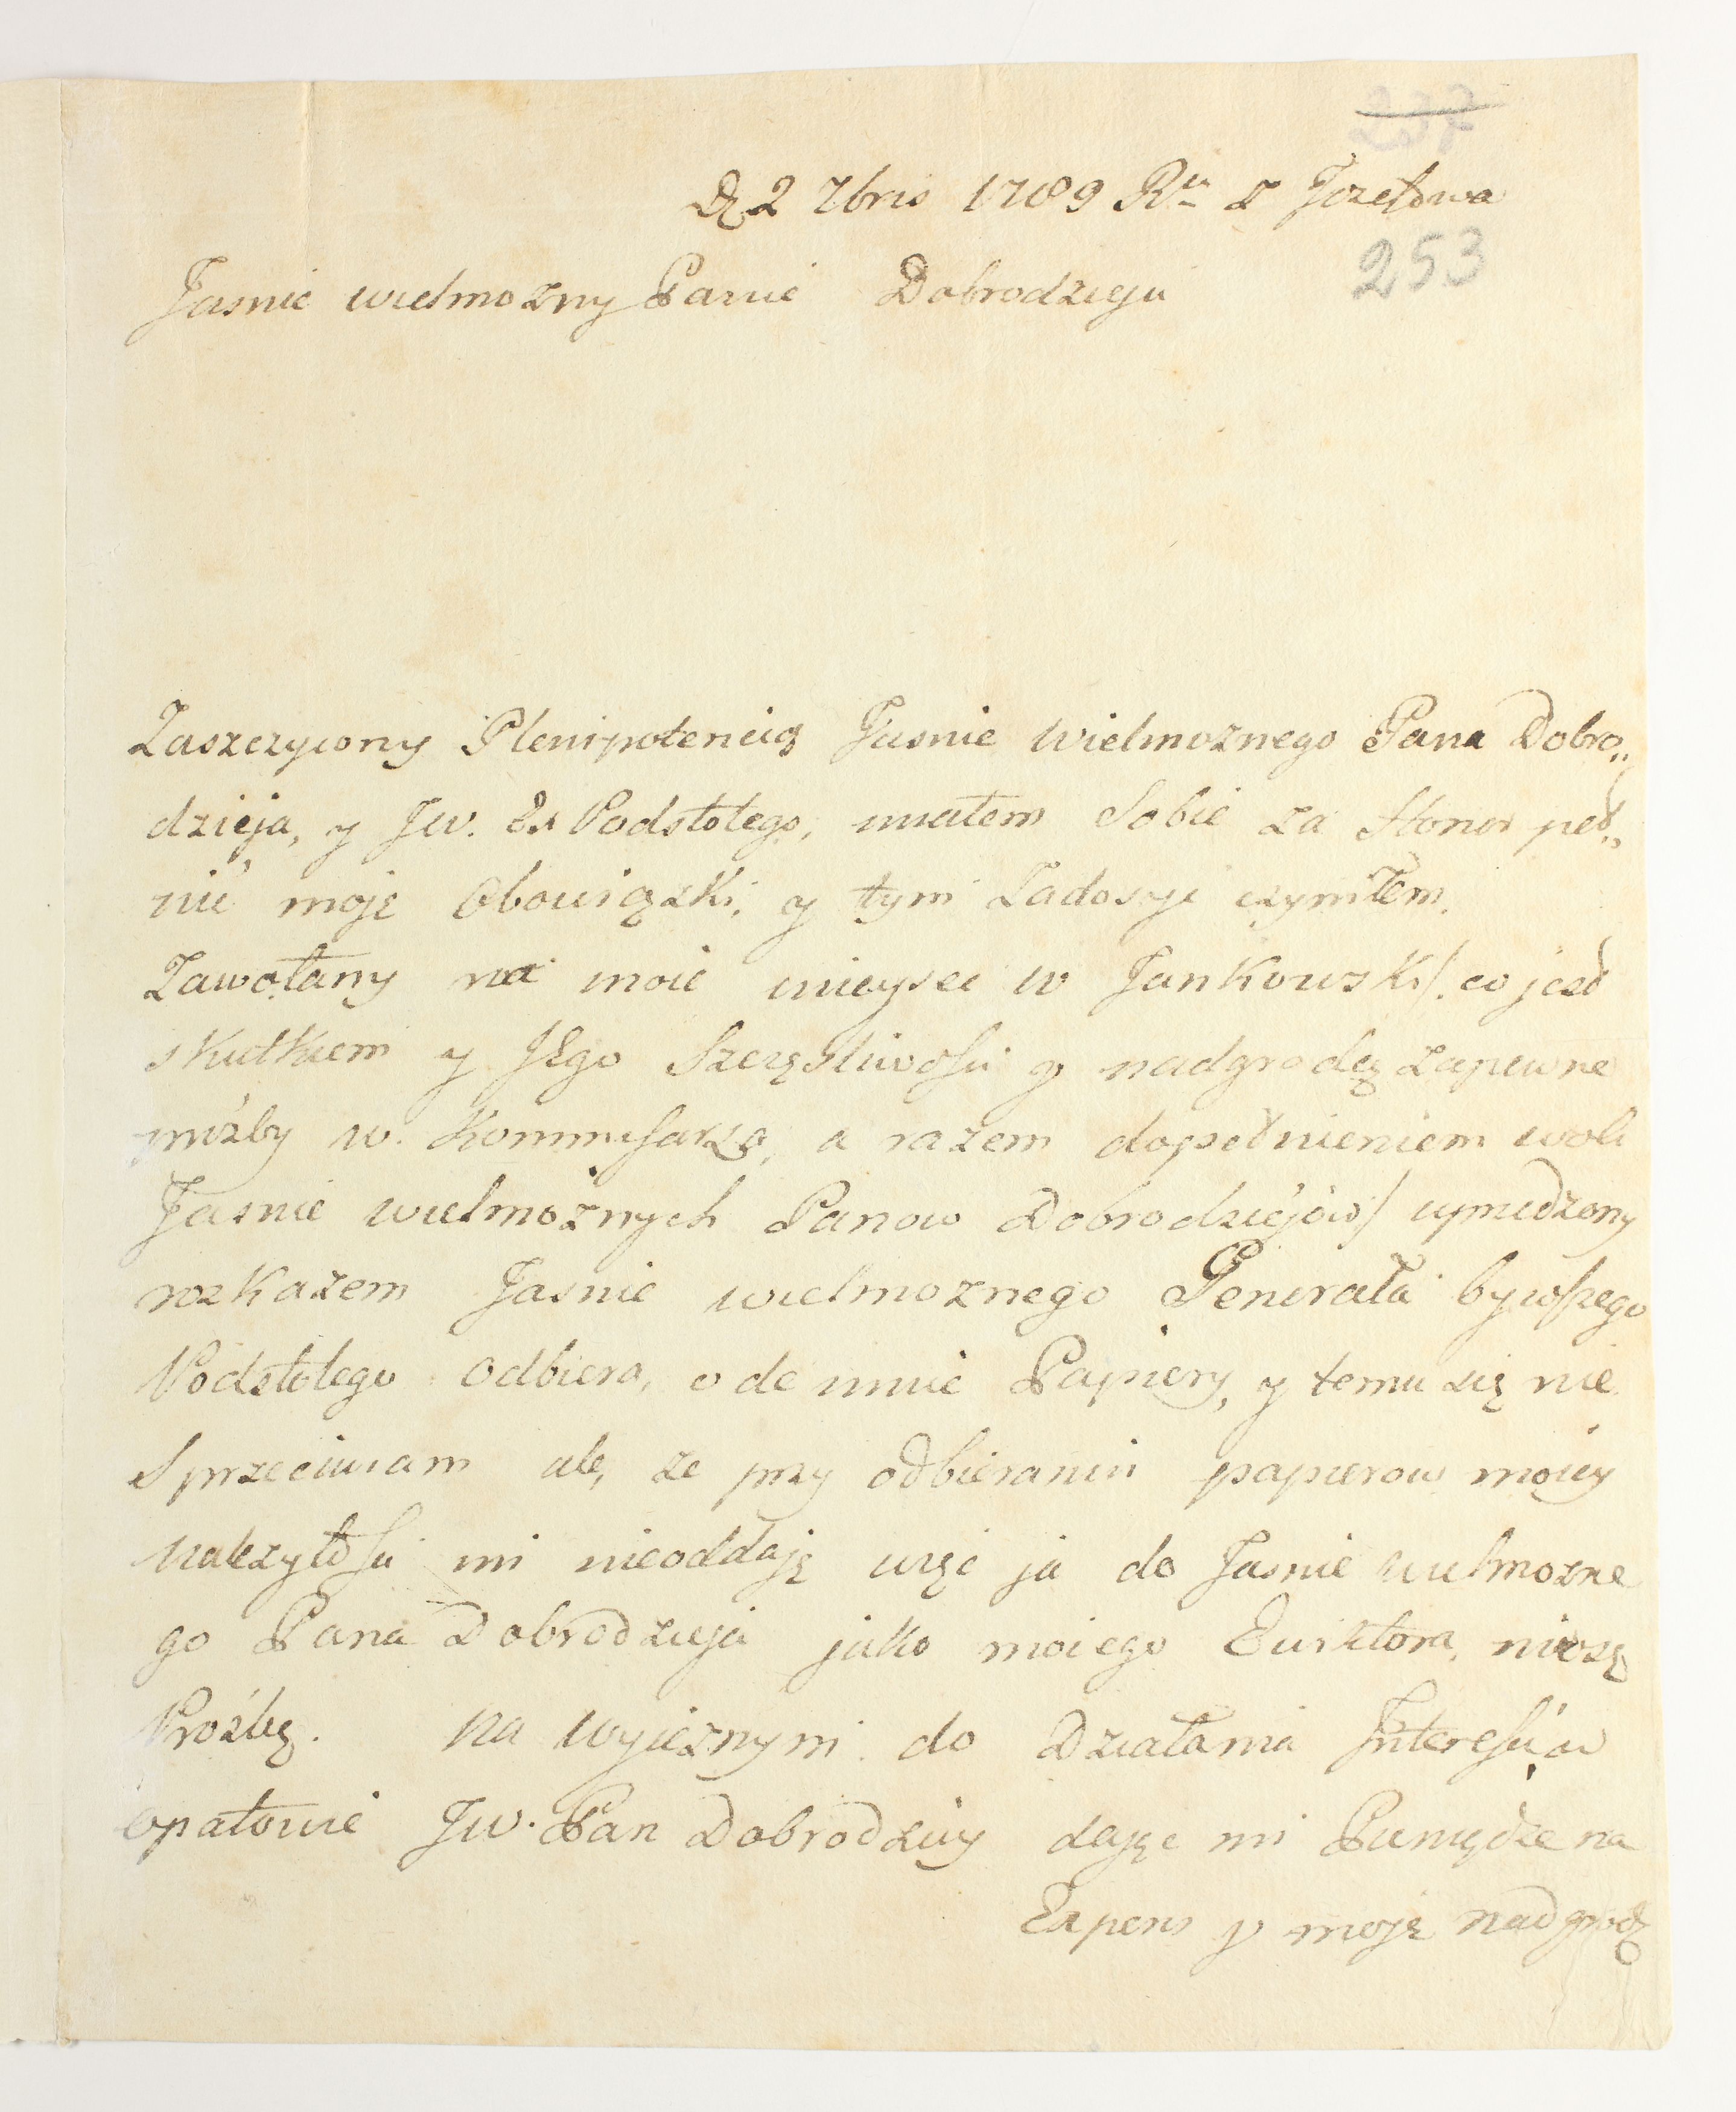 253
D 2 7bris 1789 Ru z Jozefowa
Jasnie wielmozny Panie Dobrodzieju
Zaszczycony Plenipotencią Jasnie Wielmoznego Pana Dobro„
dzieja, y Jw. Ex Podstolego, miałem Sobie za Honor peł„
nić moję Obowiązki, y tym Zadosyc czyniłem.
Zawołany na moie mieysce W Jankowski/. co jest
skutkiem y JEgo Szczęśliwosci y nadgrodą zapewne
proźby w. Kommisarza, a razem dopełnieniem woli
Jasnie wielmożnych Panow Dobrodziejów/ uprzedzony
rozkazem Jasnie wielmoznego Generała bywszego
Podstolego Odbiera, ode mnie Papiery, y temu się nie
Sprzeciwiam ale, ze przy odbieraniu papierow moiey
należytości mi nieoddaję więc ja do Jasnie wielmozne
go Pana Dobrodzieja jako moiego Ewiktora, niosę
Proźbę. Na wyjeznym do Działania Interesów
opatowie Jw. Pan Dobrodziey dając mi Pieniądze na
Expens y moję nadgrodę